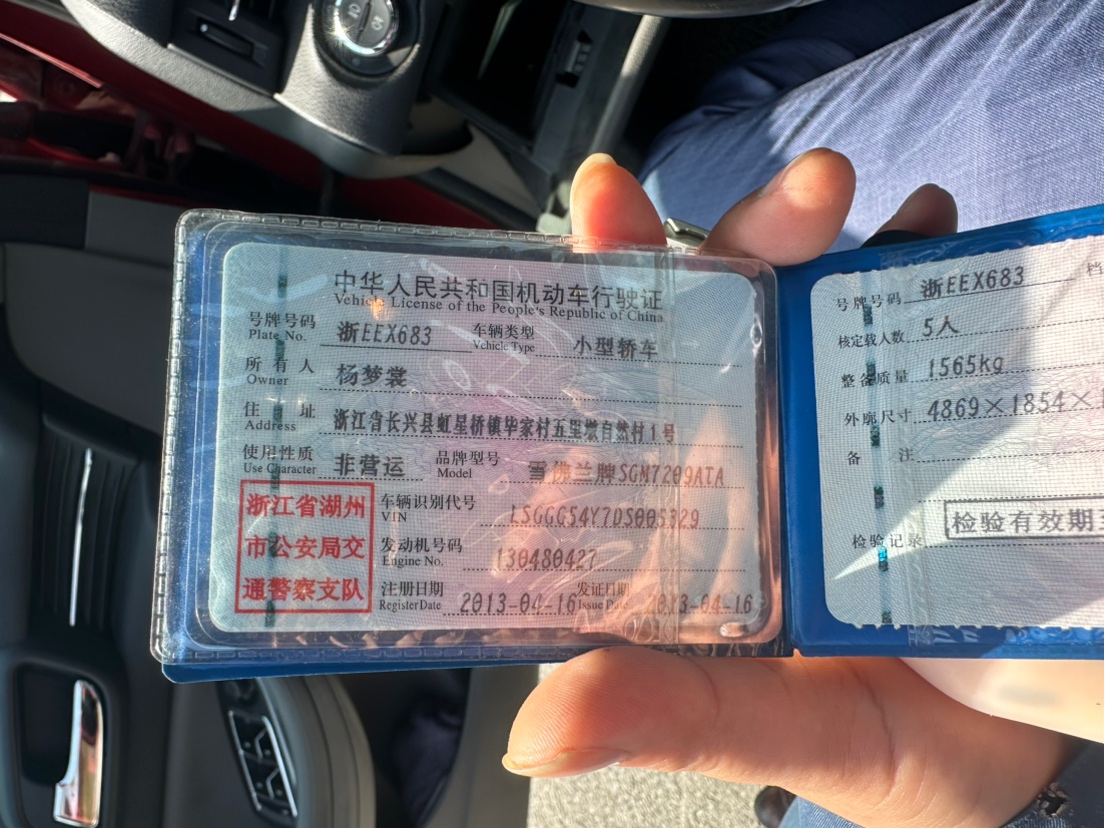 中华人民共和国机动车行驶证
Vehicle License of the People's Republic of China
号牌号码 浙EEX683 车辆类型 小型轿车
Plate No. Vehicle Type
所有人 杨梦裳
Owner
住址 浙江省长兴县虹星桥镇毕家村五里墩自然村1号
Address
使用性质 非营运 品牌型号 雪佛兰牌SGM7209ATA
Use Character Model
浙江省湖州
市公安局交
通警察支队
车辆识别代号 LSGGG54Y7DS005329
VIN
发动机号码 130480427
Engine No.
注册日期 2013-04-16 发证日期 2013-04-16
Register Date Issue Date
号牌号码 浙EEX683 档
核定载人数 5人
整备质量 1565kg
外廓尺寸 4869×1854×
备注
检验记录 检验有效期至